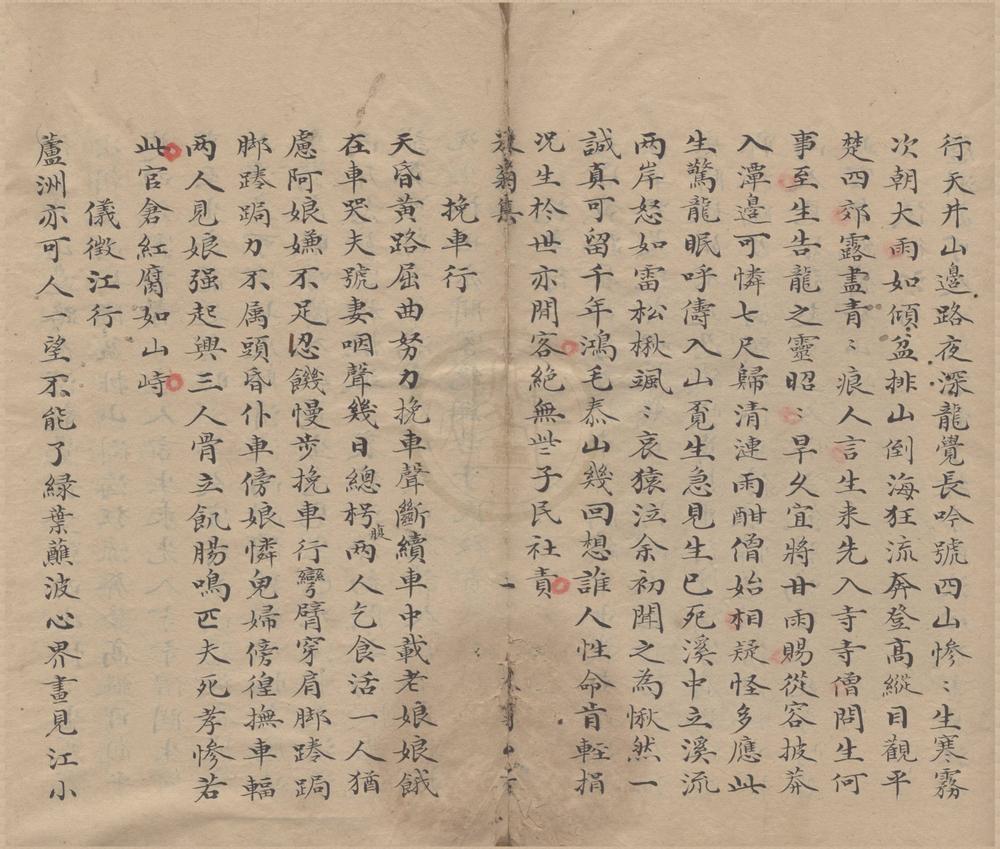 行天井山邊路夜深龍覺長吟號四山慘〻生寒霧
次朝大雨如傾盆排山倒海狂流奔登高縱目觀平
楚四郊露盡青〻痕人言生来先入寺寺僧問生何
事至生告龍之靈昭〻早久宜將甘雨賜從容披莽
入潭邊可憐七尺歸清漣雨酣僧始相疑怪多應此
生驚龍眠呼儔入山覔生急見生已死溪中立溪流
两岸怒如雷松楸颯〻哀猿泣余初聞之為愀然一
誠真可留千年鴻毛泰山幾回想誰人性命肯輕捐
况生扵世亦閒客絶無些子民社責
集
一
挽車行
天昏黄路屈曲努力挽車聲斷續車中載老娘娘餓
在車哭夫號妻咽聲幾日總枵腹两人乞食活一人猶
慮阿娘嫌不足忍饑慢步挽車行彎臂穿肩脚踡跼
脚踡跼力不属頭昏仆車傍娘憐兒婦傍徨撫車輻
两人見娘强起興三人骨立飢腸鳴匹夫死孝慘若
此官倉紅腐如山峙
儀徵江行
蘆洲亦可人一望不能了緑葉蘸波心界畫見江小